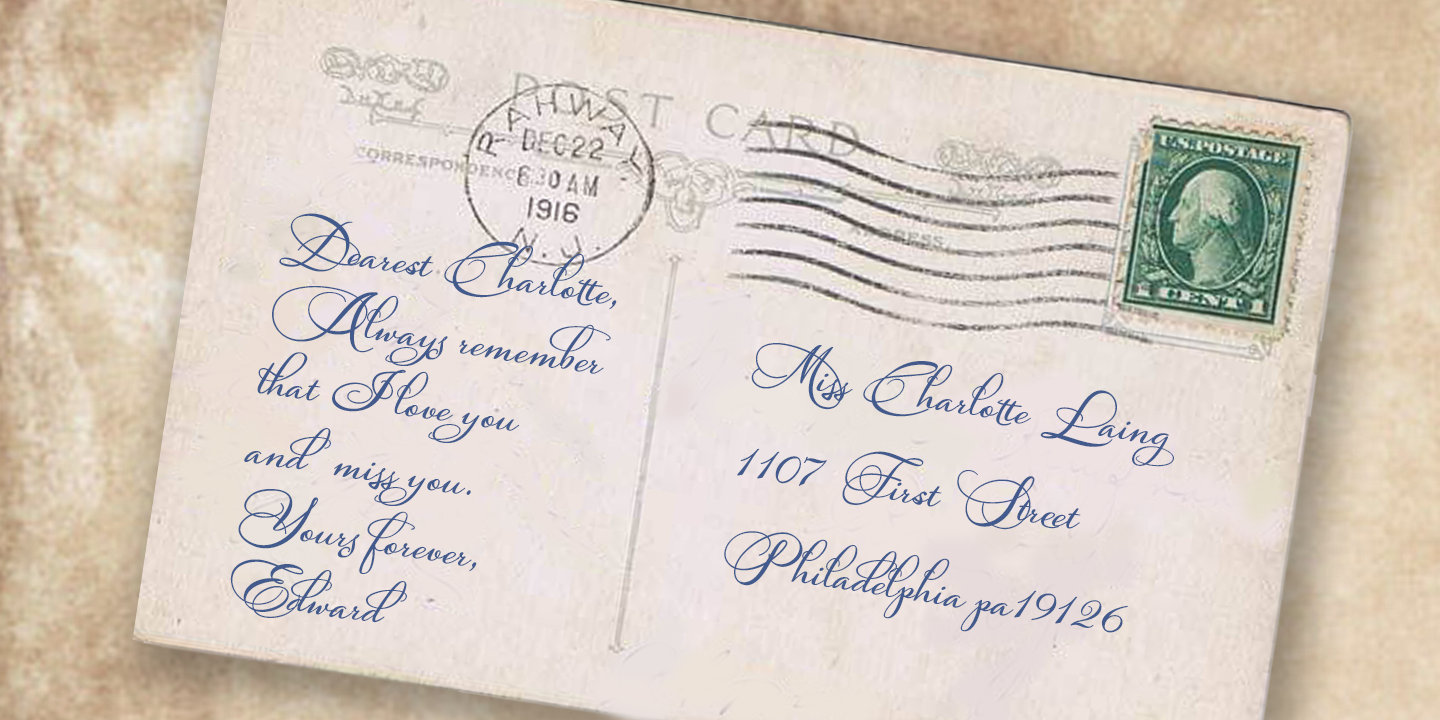 POST CARD
CORRESPONDENCE
RAHWAY
DEC 22
6 30 AM
1916
N.J.
U.S. POSTAGE
1 CENT 1
Dearest Charlotte,
Always remember
that I love you
and miss you.
Yours forever,
Edward
Miss Charlotte Laing
1107 First Street
Philadelphia pa 19126